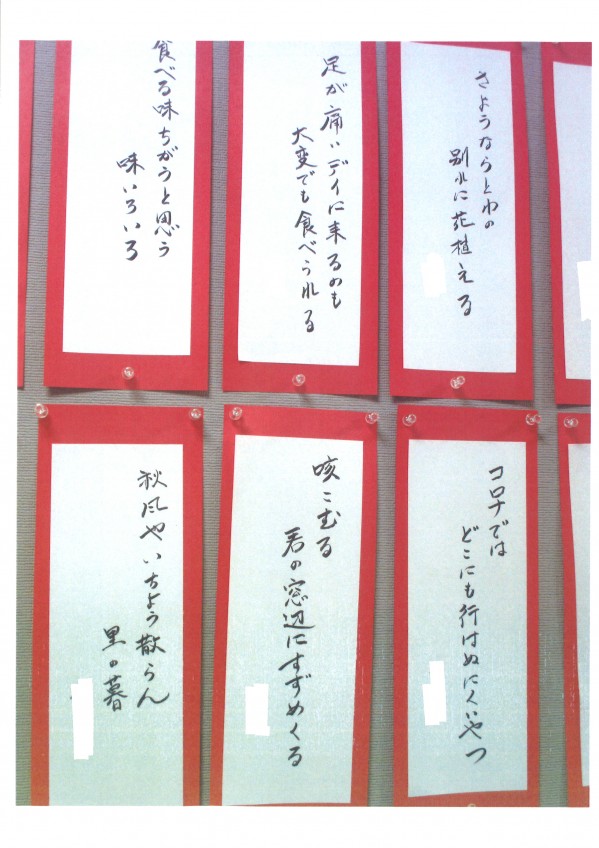 さようならとわの
別れに花植える
足が痛いデイに来るのも
大変でも食べうれる
食べる味ちがうと思う
味いろいろ
コロナでは
どこにも行けぬにくいやつ
咳こむる
君の窓辺にすずめくる
秋風やいちょう散らん
里の暮